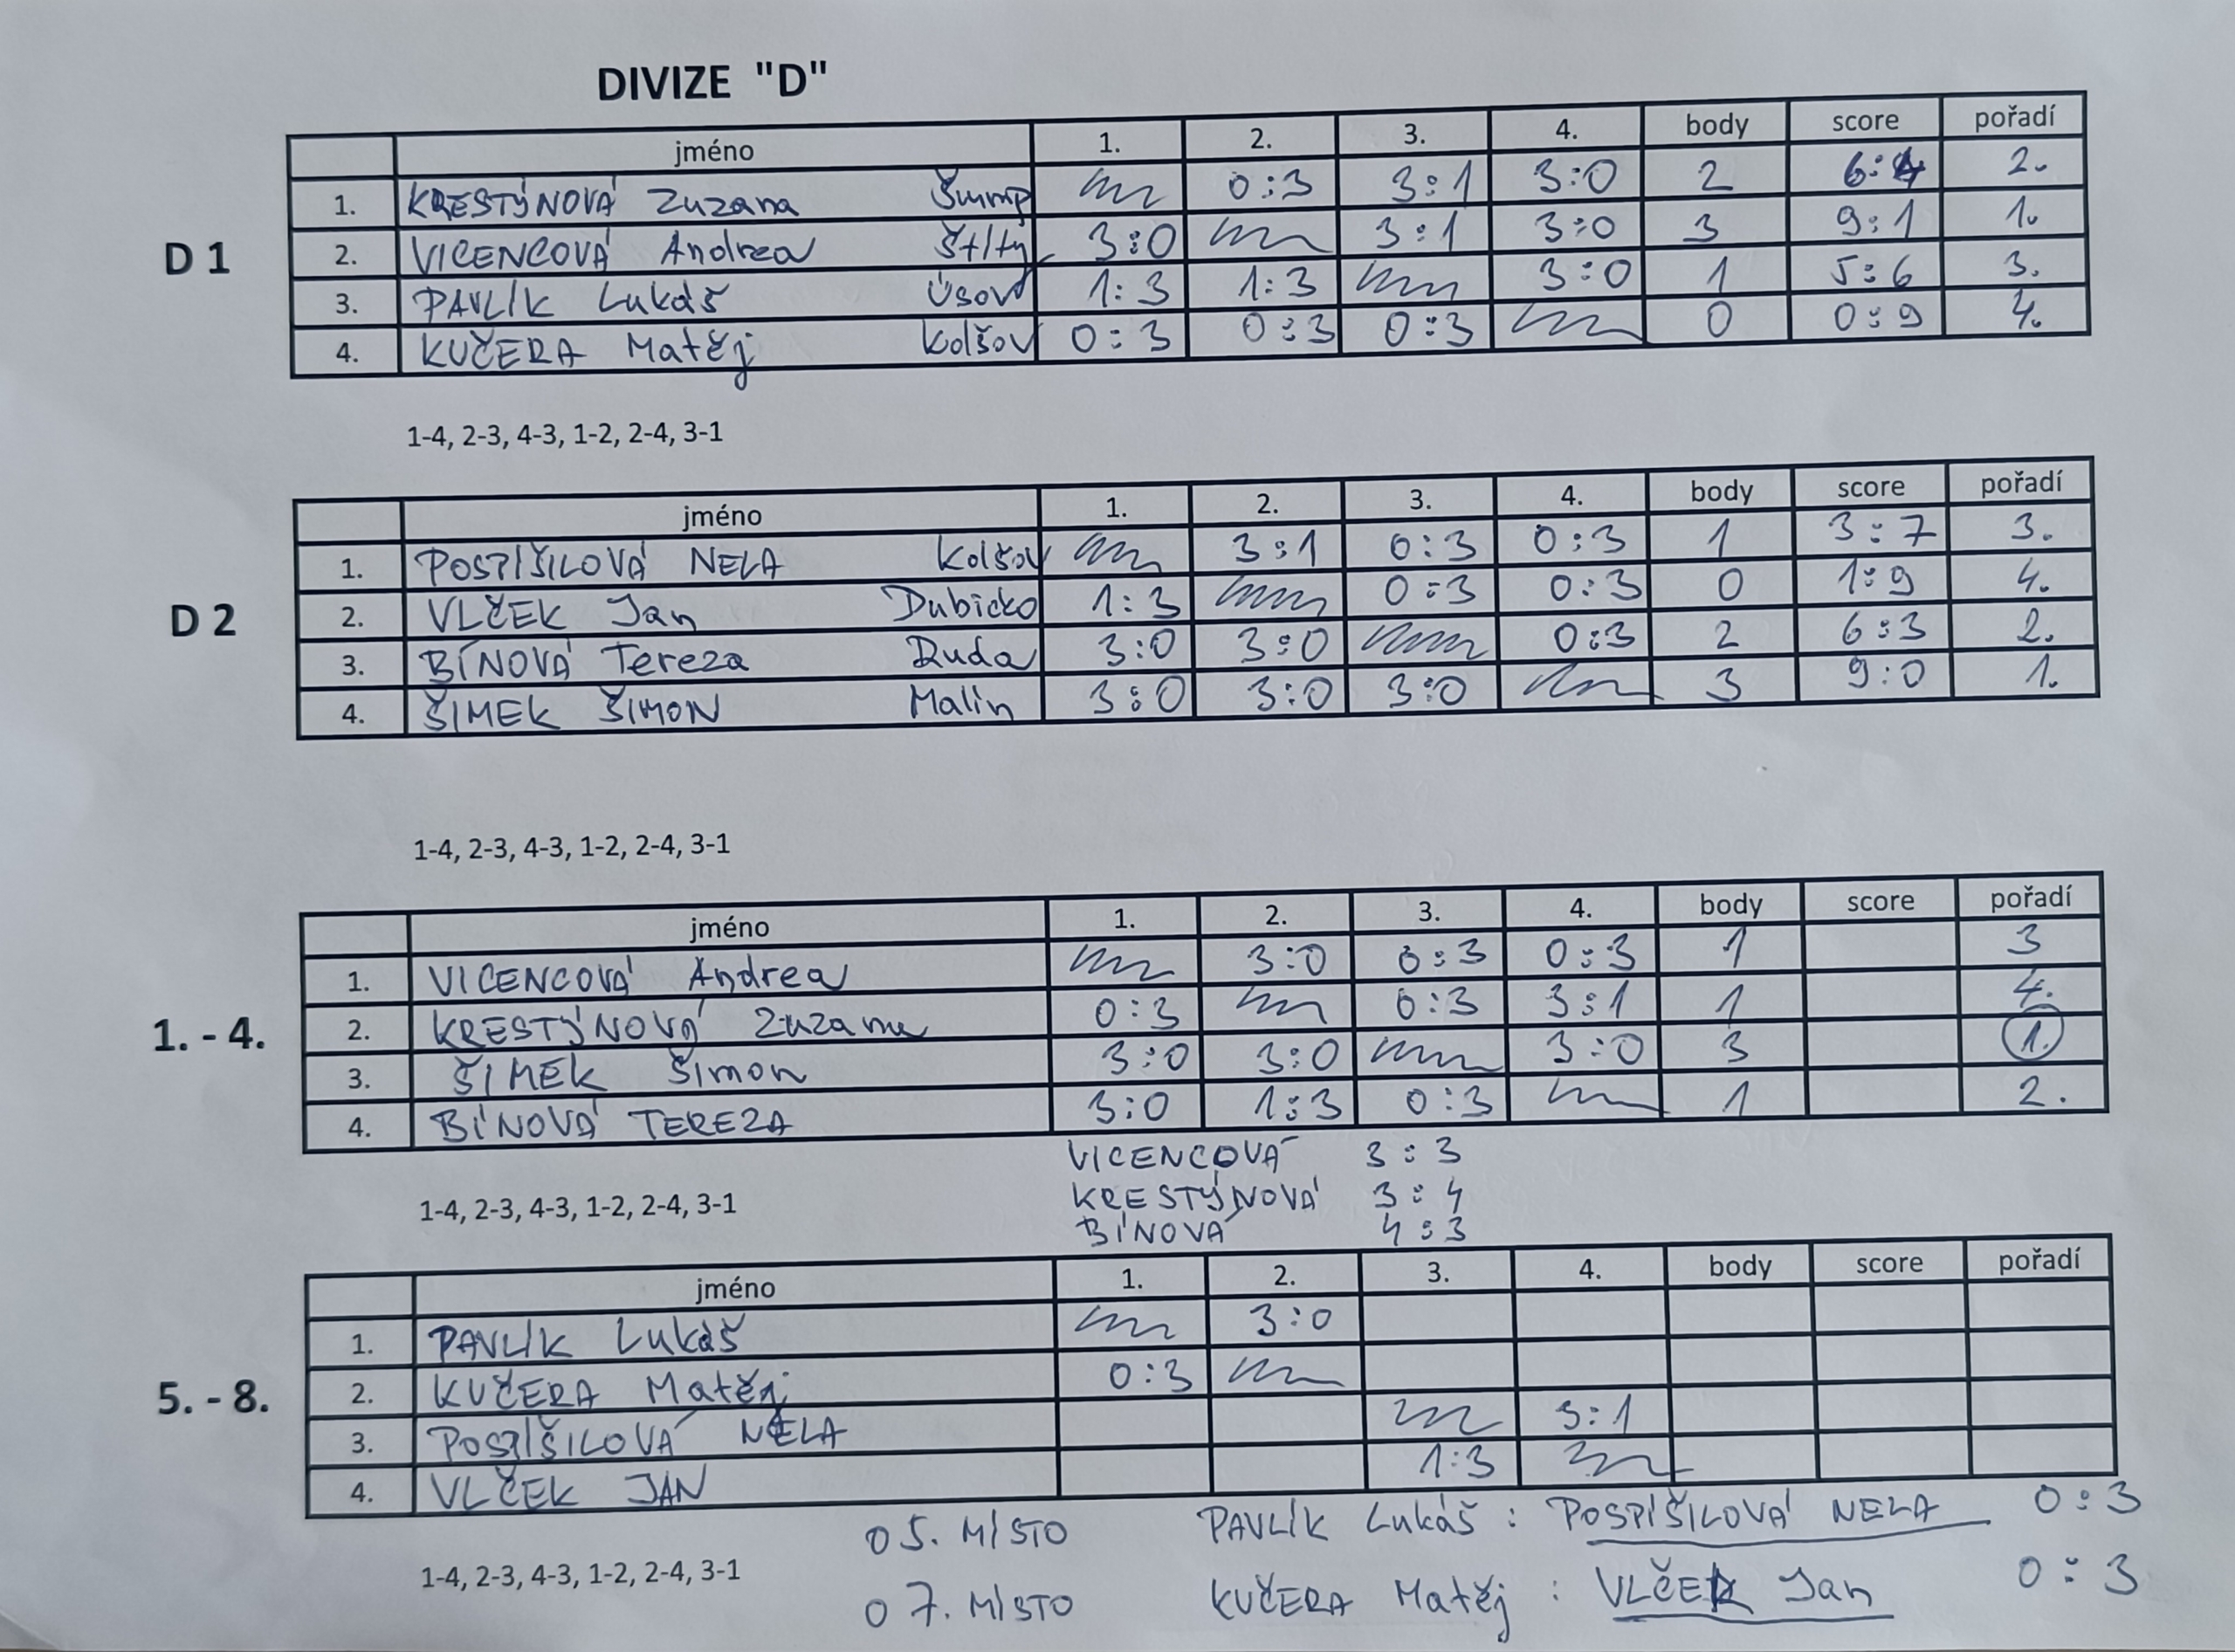 DIVIZE "D"
jméno 1. 2. 3. 4. body score pořadí
D 1
1. KRESTÝNOVÁ Zuzana Šump 0:3 3:1 3:0 2 6:4 2.
2. VICENCOVÁ Andrea Štíty 3:0 3:1 3:0 3 9:1 1.
3. PAVLÍK Lukáš Úsov 1:3 1:3 3:0 1 5:6 3.
4. KUČERA Matěj Kolšov 0:3 0:3 0:3 0 0:9 4.
1-4, 2-3, 4-3, 1-2, 2-4, 3-1
jméno 1. 2. 3. 4. body score pořadí
D 2
1. POSPÍŠILOVÁ NELA Kolšov 3:1 0:3 0:3 1 3:7 3.
2. VLČEK Jan Dubicko 1:3 0:3 0:3 0 1:9 4.
3. BÍNOVÁ Tereza Ruda 3:0 3:0 0:3 2 6:3 2.
4. ŠIMEK ŠIMON Malín 3:0 3:0 3:0 3 9:0 1.
1-4, 2-3, 4-3, 1-2, 2-4, 3-1
jméno 1. 2. 3. 4. body score pořadí
1. - 4.
1. VICENCOVÁ Andrea 3:0 0:3 0:3 1 3
2. KRESTÝNOVÁ Zuzana 0:3 0:3 3:1 1 4.
3. ŠIMEK Šimon 3:0 3:0 3:0 3 1.
4. BÍNOVÁ TEREZA 3:0 1:3 0:3 1 2.
VICENCOVÁ 3:3
KRESTÝNOVÁ 3:4
BÍNOVÁ 4:3
1-4, 2-3, 4-3, 1-2, 2-4, 3-1
jméno 1. 2. 3. 4. body score pořadí
5. - 8.
1. PAVLÍK Lukáš 3:0
2. KUČERA Matěj 0:3
3. POSPÍŠILOVÁ NELA 3:1
4. VLČEK JAN 1:3
O 5. MÍSTO PAVLÍK Lukáš : POSPÍŠILOVÁ NELA 0:3
1-4, 2-3, 4-3, 1-2, 2-4, 3-1
O 7. MÍSTO KUČERA Matěj : VLČEK Jan 0:3